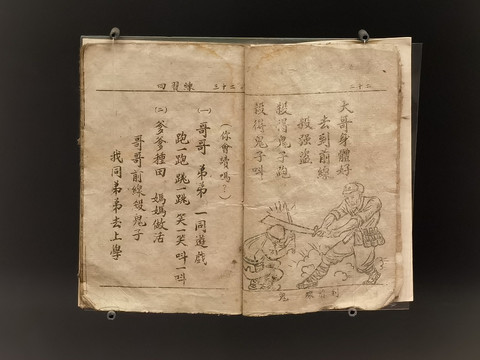 二十二
大哥身體好
去到前線
殺強盜
殺得鬼子跑
殺得鬼子叫
二十三
練習四
(你會讀嗎?)
(一) 哥哥 弟弟 一同遊戲
跑一跑 跳一跳 笑一笑 叫一叫
(二) 爹爹種田 媽媽做活
哥哥前線殺鬼子
我同弟弟去上學